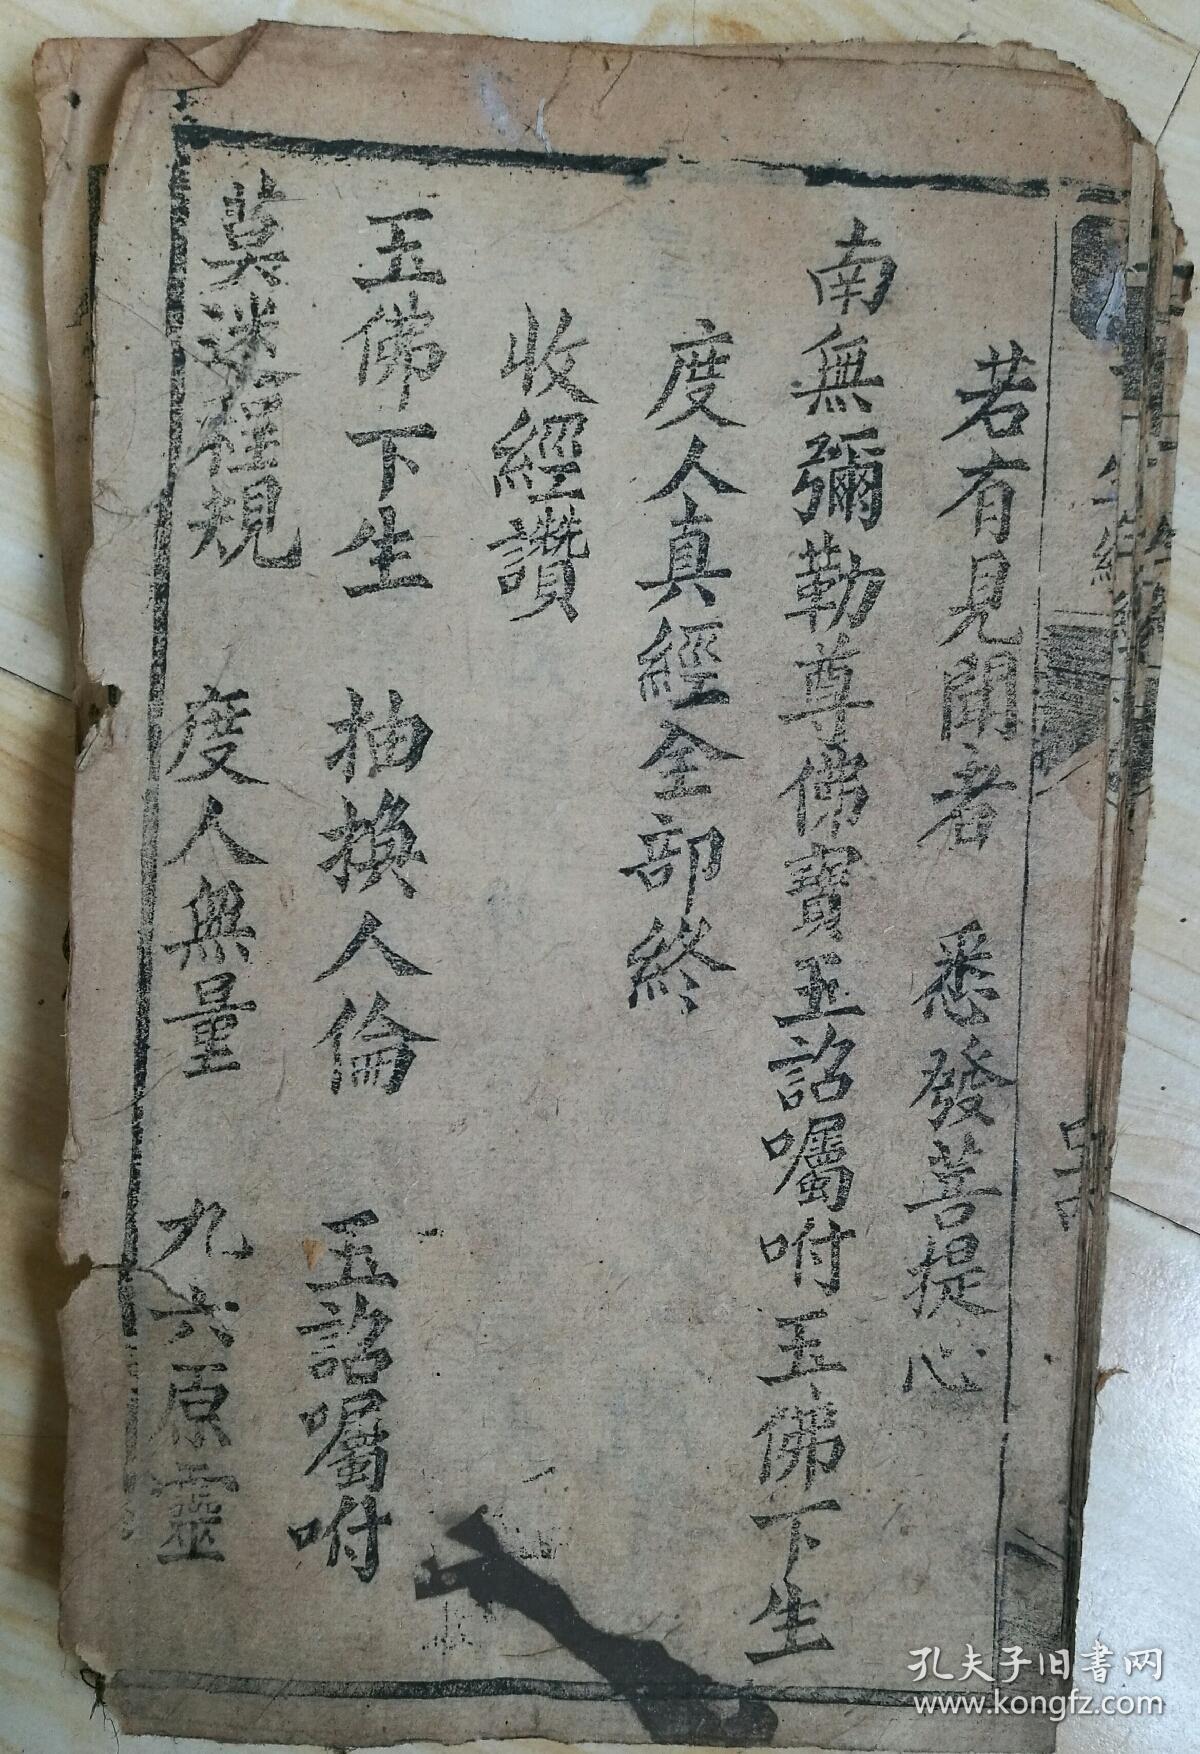 若有見聞者 悉發菩提心
南無彌勒尊佛寶玉詔囑咐玉佛下生
度人真經全部終
收經讚
玉佛下生 抽換人倫 玉詔囑咐
莫迷程規 度人無量 九六原靈
孔夫子旧書网
www.kongfz.com